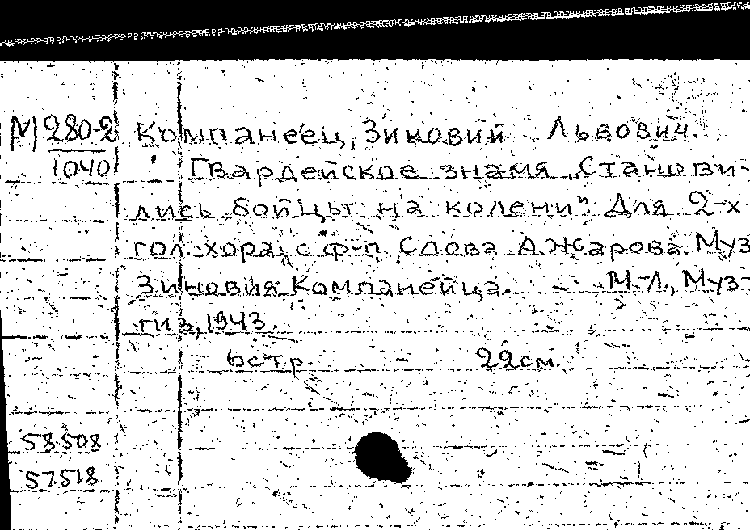 М 280-2 Компанеец, Зиновий Львович.
1040 Гвардейское знамя „Станови-
лись бойцы на колени". Для 2-х
гол. хора с ф-п. Слова А. Жарова. Муз
Зиновия Компанейца. М.-Л., Муз-
гиз, 1943.
6 стр. 22 см.
58508
57518